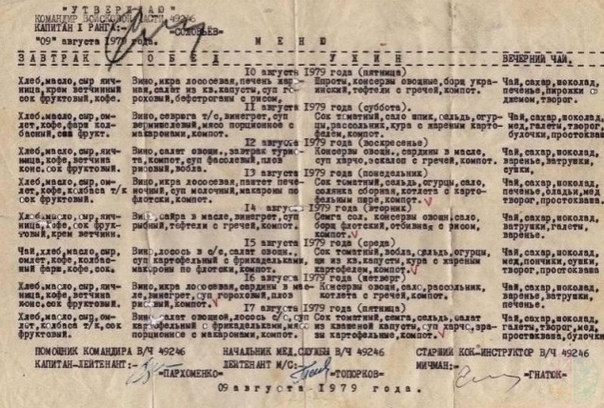 "УТВЕРЖДАЮ"
КОМАНДИР ВОЙСКОВОЙ ЧАСТИ 49246
КАПИТАН I РАНГА:- -СОЛОВЬЕВ-
"09" августа 1979 года.
М Е Н Ю
З А В Т Р А К О Б Е Д У Ж И Н ВЕЧЕРНИЙ ЧАЙ.
10 августа 1979 года (пятница)
Хлеб,масло,сыр яич- Вино,икра лососевая,печень жаре- Шпроты,консервы овощные,борщ укра- Чай,сахар,шоколад,
ница,крем ветчинный ная,салат из кв.капусты,суп го- инский,тефтели с гречей,компот. печенье,пирожки с
сок фруктовый,кофе. роховый,бефстроганы с рисом, джемом,творог.
11 августа 1979 года (суббота).
Хлеб,масло,сыр,ом- Вино,севрюга т/с,винегрет,суп Сок томатный,сало шпик,сельдь,огур- Чай,сахар,шоколад,
лет,кофе,фарш кол- вермишелевый,мясо порционное с цы,рассольник,кура с жареным карто- мед,галеты,творог,
басный,сок фрукт. макаронами,компот. фелем,компот. булочки,простокваша
12 августа 1979 года (воскресенье)
Хлеб,масло,сыр,яич- Вино,салат овощн.,завтрак турис- Консервы овощн.,сардины в масле, Чай,сахар,шоколад,
ница,кофе,ветчина та,компот,суп фасолевый,плов суп харчо,эскалоп с гречей,компот. варенье,ватрушки,
конс.,сок фруктовый. рисовый,вобла. сушки.
13 августа 1979 года (понедельник)
Хлеб,масло,сыр,ом- Вино,икра лососевая,паштет пече- Сок томатный,сельдь,огурцы,сало, Чай,сахар,шоколад,
лет,кофе,колбаса т/к ночный,суп молочный,макароны по солянка сборная,котлета с карто- печенье,оладьи,мед
сок фруктовый. флотски,компот. фельным пюре,компот. творог,простокваша.
14 августа 1979 года (вторник)
Хлеб,масло,сыр,яич- Вино,сайра в масле,винегрет,суп Семга сол,консервы овощн,сало, Чай,сахар,шоколад,
ница,кофе,сок фрук- рыбный,тефтели с гречей,компот. борщ флотский,отбивная с рисом, ватрушки,галеты,
товый,крем ветчин. компот. варенье.
15 августа 1979 года (среда)
Чай,хлеб,масло,сыр Вино,лосось в с/с,салат овощн., Сок томатный,вобла,сельдь,огурцы, Чай,сахар,шоколад,
омлет,кофе,колбас- суп картофельный с фрикадельками, щи из кв.капусты,кура с жареным мед,пончики,сушки,
ный фарш,кофе,сок. макароны по флотски,компот. картофелем,компот. творог,простокваша
16 августа 1979 года (четверг)
Хлеб,масло,сыр,яич- Вино,икра лососевая,сардины в мас- Консервы овощн,сало,рассольник, Чай,сахар,шоколад,
ница,кофе,ветчина ле,винегрет,суп гороховый,плов котлета с гречей,компот. варенье,ватрушки,
конс.сок фруктовый рисовый,компот. печенье.
17 августа 1979 года (пятница)
Хлеб,масло,сыр,ом- Вино,салат овощной,лосось с/с,суп Сок томатный,икра,сельдь,салат Чай,сахар,шоколад,
лет,колбаса т/к,сок картофельный с фрикадельками,мясо из квашеной капусты,суп харчо,зра- галеты,творог,мед,
фруктовый. порционное с макаронами,компот. зы картофельные,компот. простокваша,булочки
ПОМОЩНИК КОМАНДИРА В/Ч 49246 НАЧАЛЬНИК МЕД.СЛУЖБЫ В/Ч 49246 СТАРШИЙ КОК-ИНСТРУКТОР В/Ч 49246
КАПИТАН-ЛЕЙТЕНАНТ:- -ПАРХОМЕНКО- ЛЕЙТЕНАНТ М/С:- -ТОПОРКОВ- МИЧМАН:- -ГНАТЮК-
09 августа 1979 года.